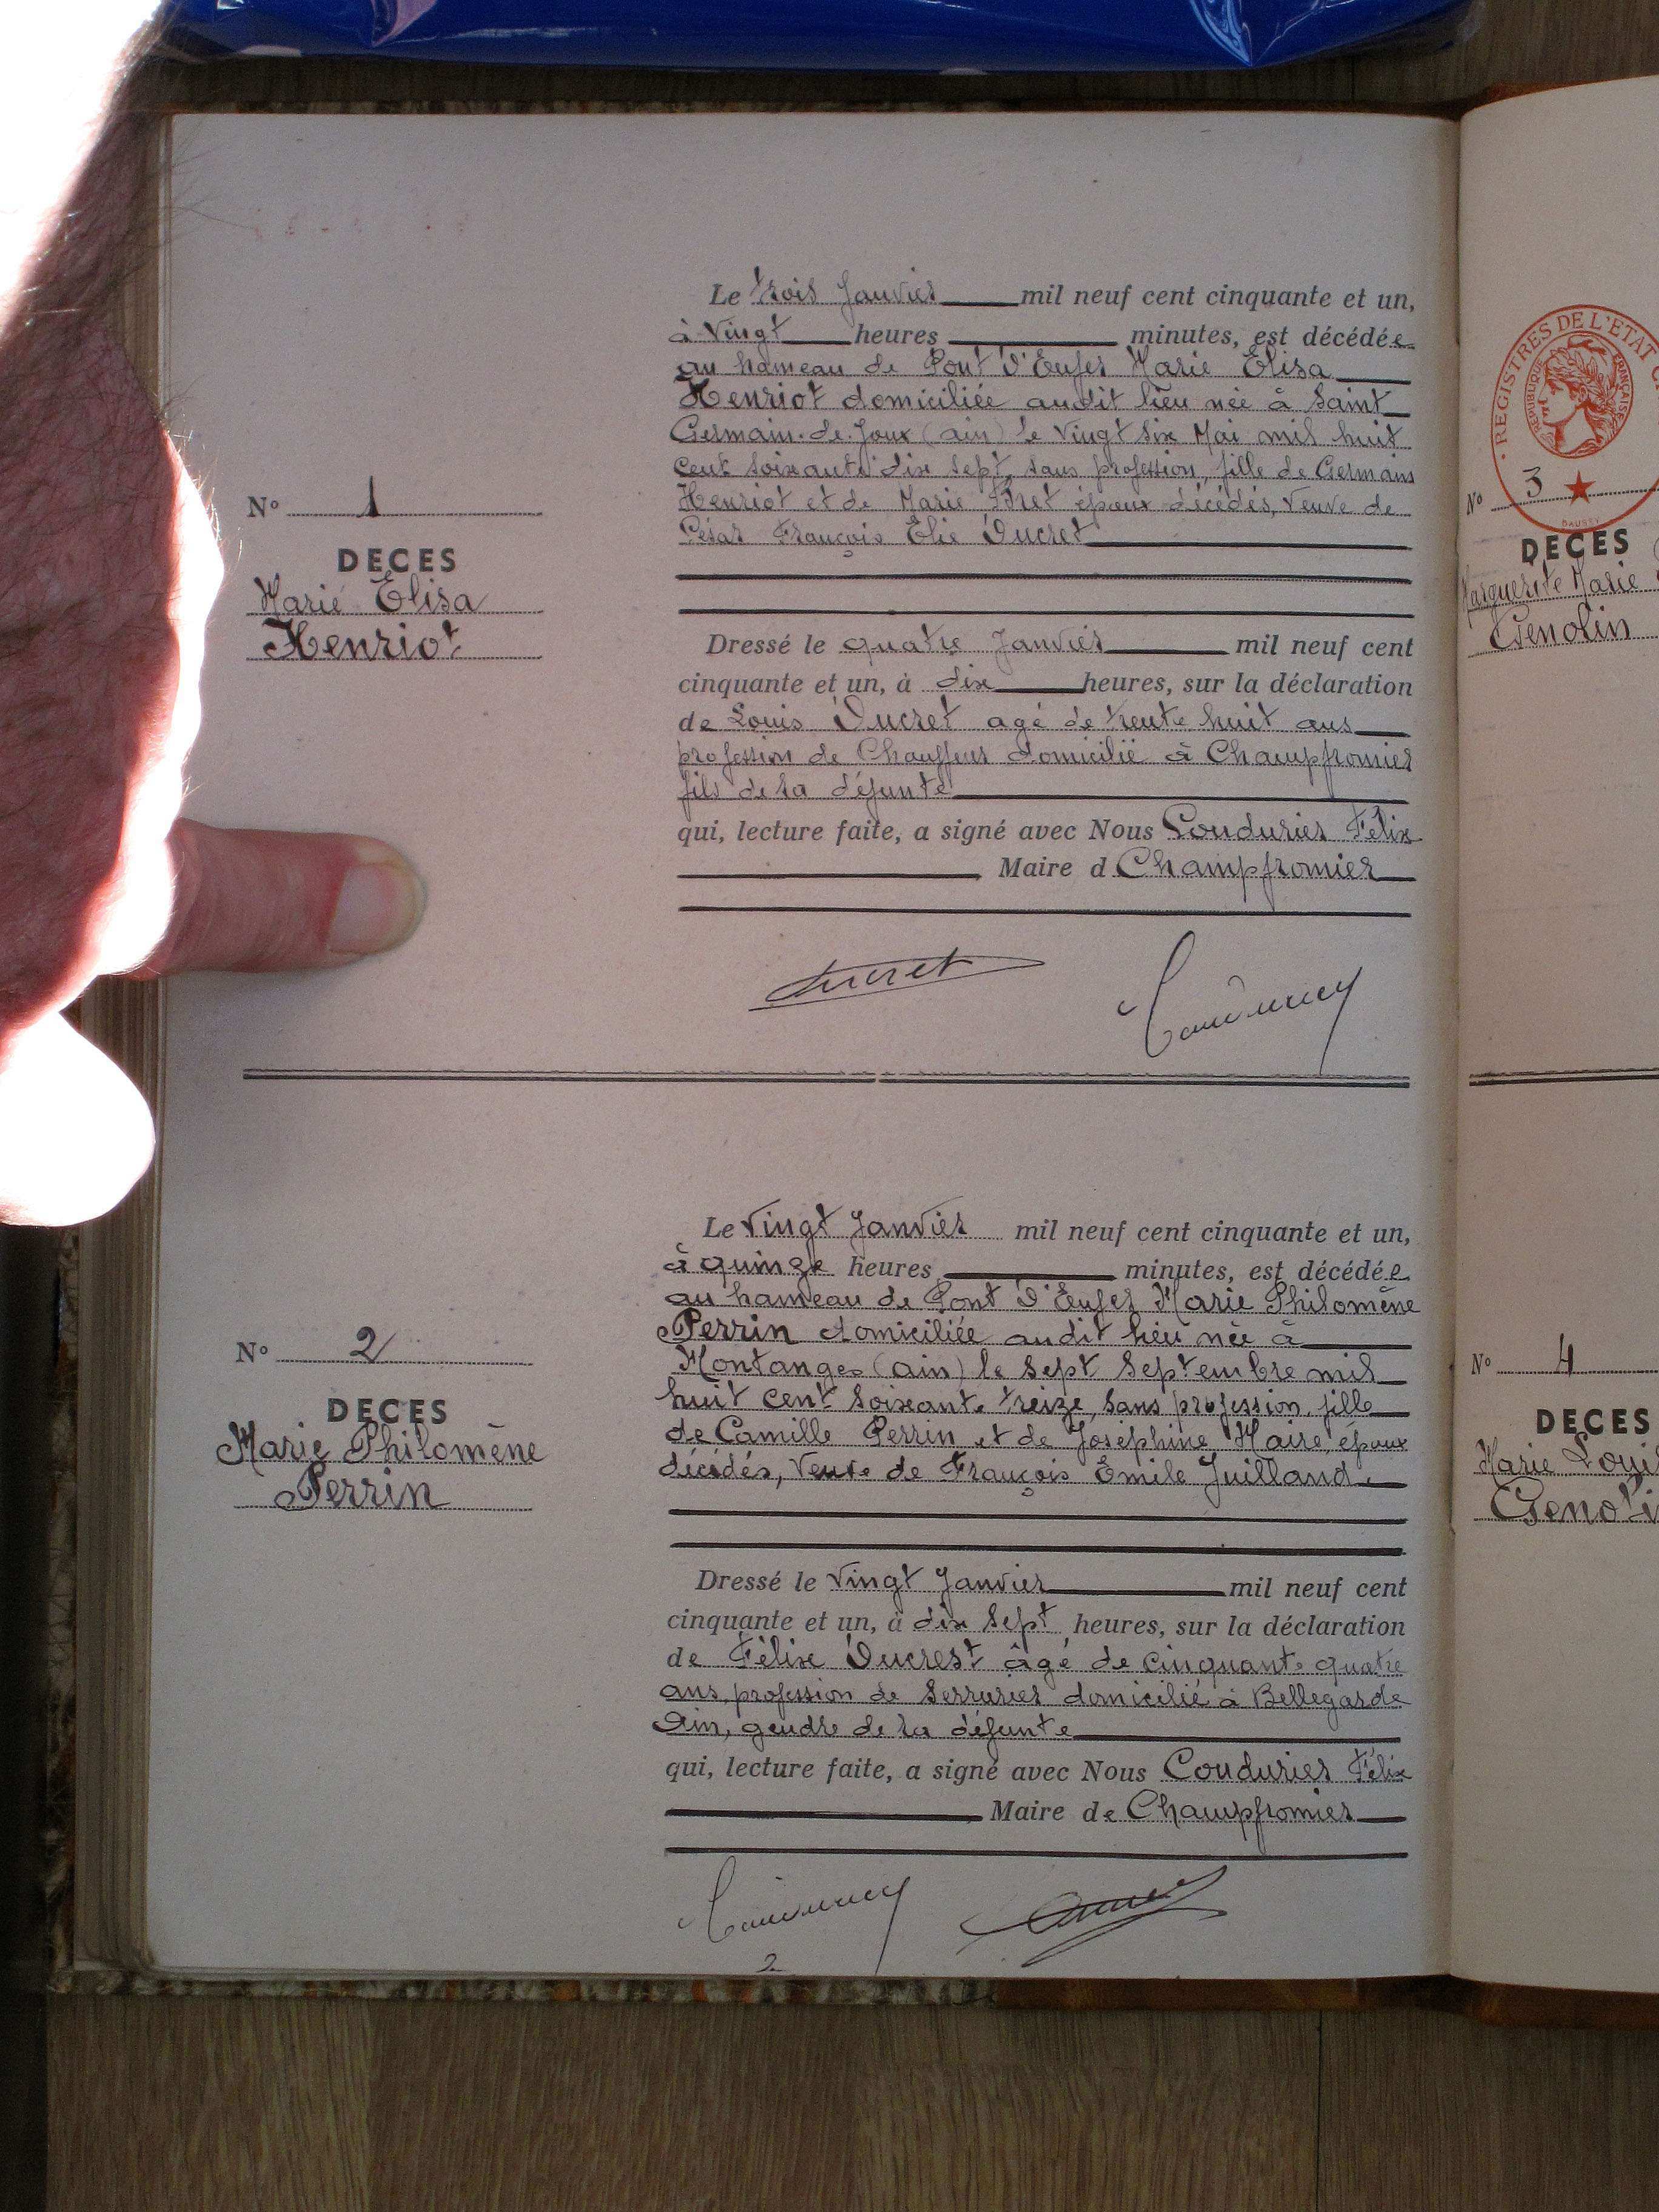 Le trois Janvier mil neuf cent cinquante et un,
à Vingt heures minutes, est décédée
au hameau de Pont d'Enfer Marie Élisa
Henriot domiciliée audit lieu née à Saint
Germain-de-Joux (ain) le Vingt six Mai mil huit
cent soixante dix sept, sans profession, fille de Germain
Henriot et de Marie époux décédés, Veuve de
César François Elie Ducret
N° 1
DECES
Marie Élisa
Henriot
Dressé le quatre Janvier mil neuf cent
cinquante et un, à dix heures, sur la déclaration
de Louis Ducret agé de trente huit ans
profession de Chauffeur domicilié à Champfromier
fils de la défunte
qui, lecture faite, a signé avec Nous Coudurier Félix
Maire d Champfromier
Ducret
Coudurier
Le Vingt Janvier mil neuf cent cinquante et un,
à quinze heures minutes, est décédée
au hameau de Pont d'Enfer Marie Philomène
Perrin domiciliée audit lieu née à
Montanges (ain) le sept Septembre mil
huit cent soixante treize, sans profession, fille
de Camille Perrin et de Joséphine Maire, époux
décédés, Veuve de François Emile Juilland
N° 2
DECES
Marie Philomène
Perrin
Dressé le Vingt Janvier mil neuf cent
cinquante et un, à dix sept heures, sur la déclaration
de Félix Ducrest âgé de cinquante quatre
ans, profession de Serrurier domicilié à Bellegarde
Ain, gendre de la défunte
qui, lecture faite, a signé avec Nous Coudurier Félix
Maire de Champfromier
Coudurier
2
REGISTRES DE L'ETAT
REPUBLIQUE FRANÇAISE
N° 3
DECES
Marguerite Marie
Genolin
N° 4
DECES
Marie